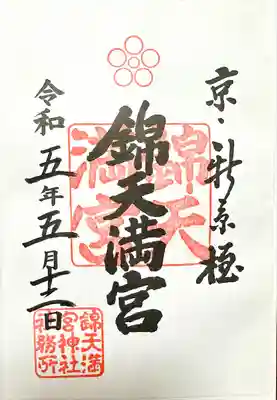 京・新京極
錦天満宮
錦天
満宮
令和五年五月十二日
錦天満
宮神社
社務所